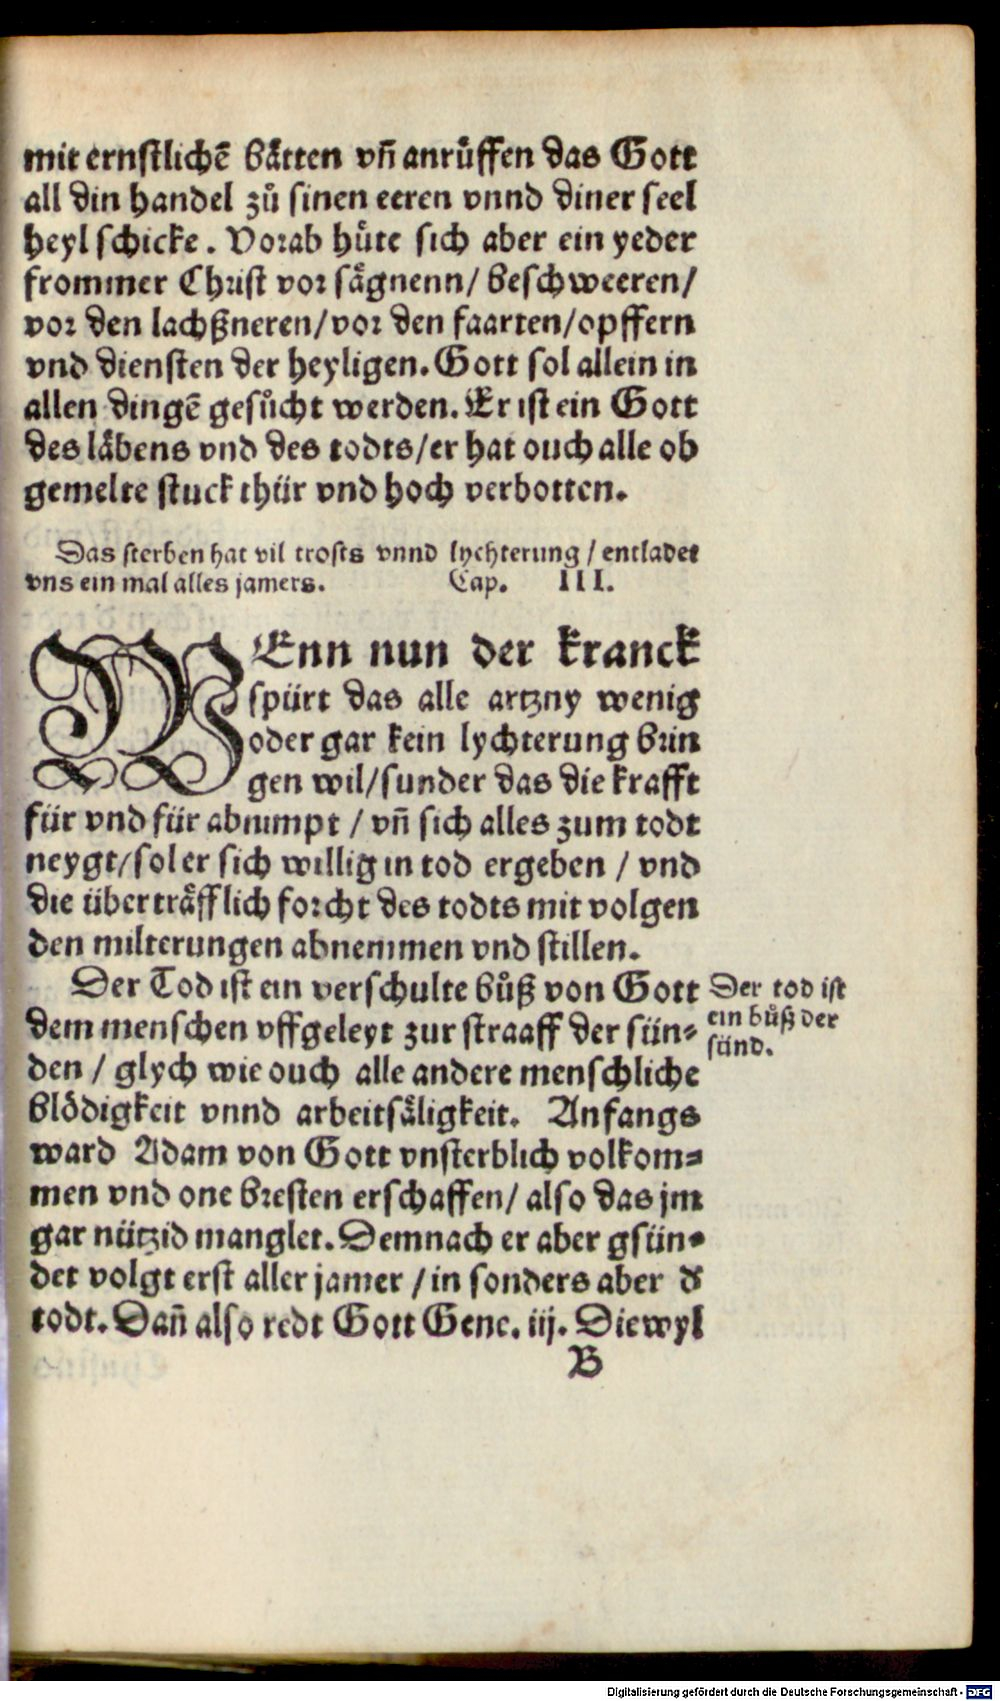 mit ernstlichē bätten vñ anrüffen das Gott
all din handel zů sinen eeren vnnd diner seel
heyl schicke. Vorab hüte sich aber ein yeder
frommer Christ vor sägnenn/ beschweeren/
vor den lachßneren/vor den faarten/opffern
vnd diensten der heyligen. Gott sol allein in
allen dingē gesůcht werden. Er ist ein Gott
des läbens vnd des todts/er hat ouch alle ob
gemelte stuck thür vnd hoch verbotten.
Das sterben hat vil trosts vnnd lychterung / entladet
vns ein mal alles jamers. Cap. III.
WEnn nun der kranck
spürt das alle artzny wenig
oder gar kein lychterung brin
gen wil/sunder das die krafft
für vnd für abnimpt / vñ sich alles zum todt
neygt/sol er sich willig in tod ergeben / vnd
die überträfflich forcht des todts mit volgen
den milterungen abnemmen vnd stillen.
Der Tod ist ein verschulte bůß von Gott
dem menschen vffgeleyt zur straaff der sün-
den / glych wie ouch alle andere menschliche
blödigkeit vnnd arbeitsäligkeit. Anfangs
ward Adam von Gott vnsterblich volkom-
men vnd one bresten erschaffen/ also das jm
gar nützid manglet. Demnach er aber gsün-
det volgt erst aller jamer / in sonders aber d̛
todt. Dañ also redt Gott Gene. iij. Diewyl
B
Der tod ist
ein bůß der
sünd.
Digitalisierung gefördert durch die Deutsche Forschungsgemeinschaft - DFG